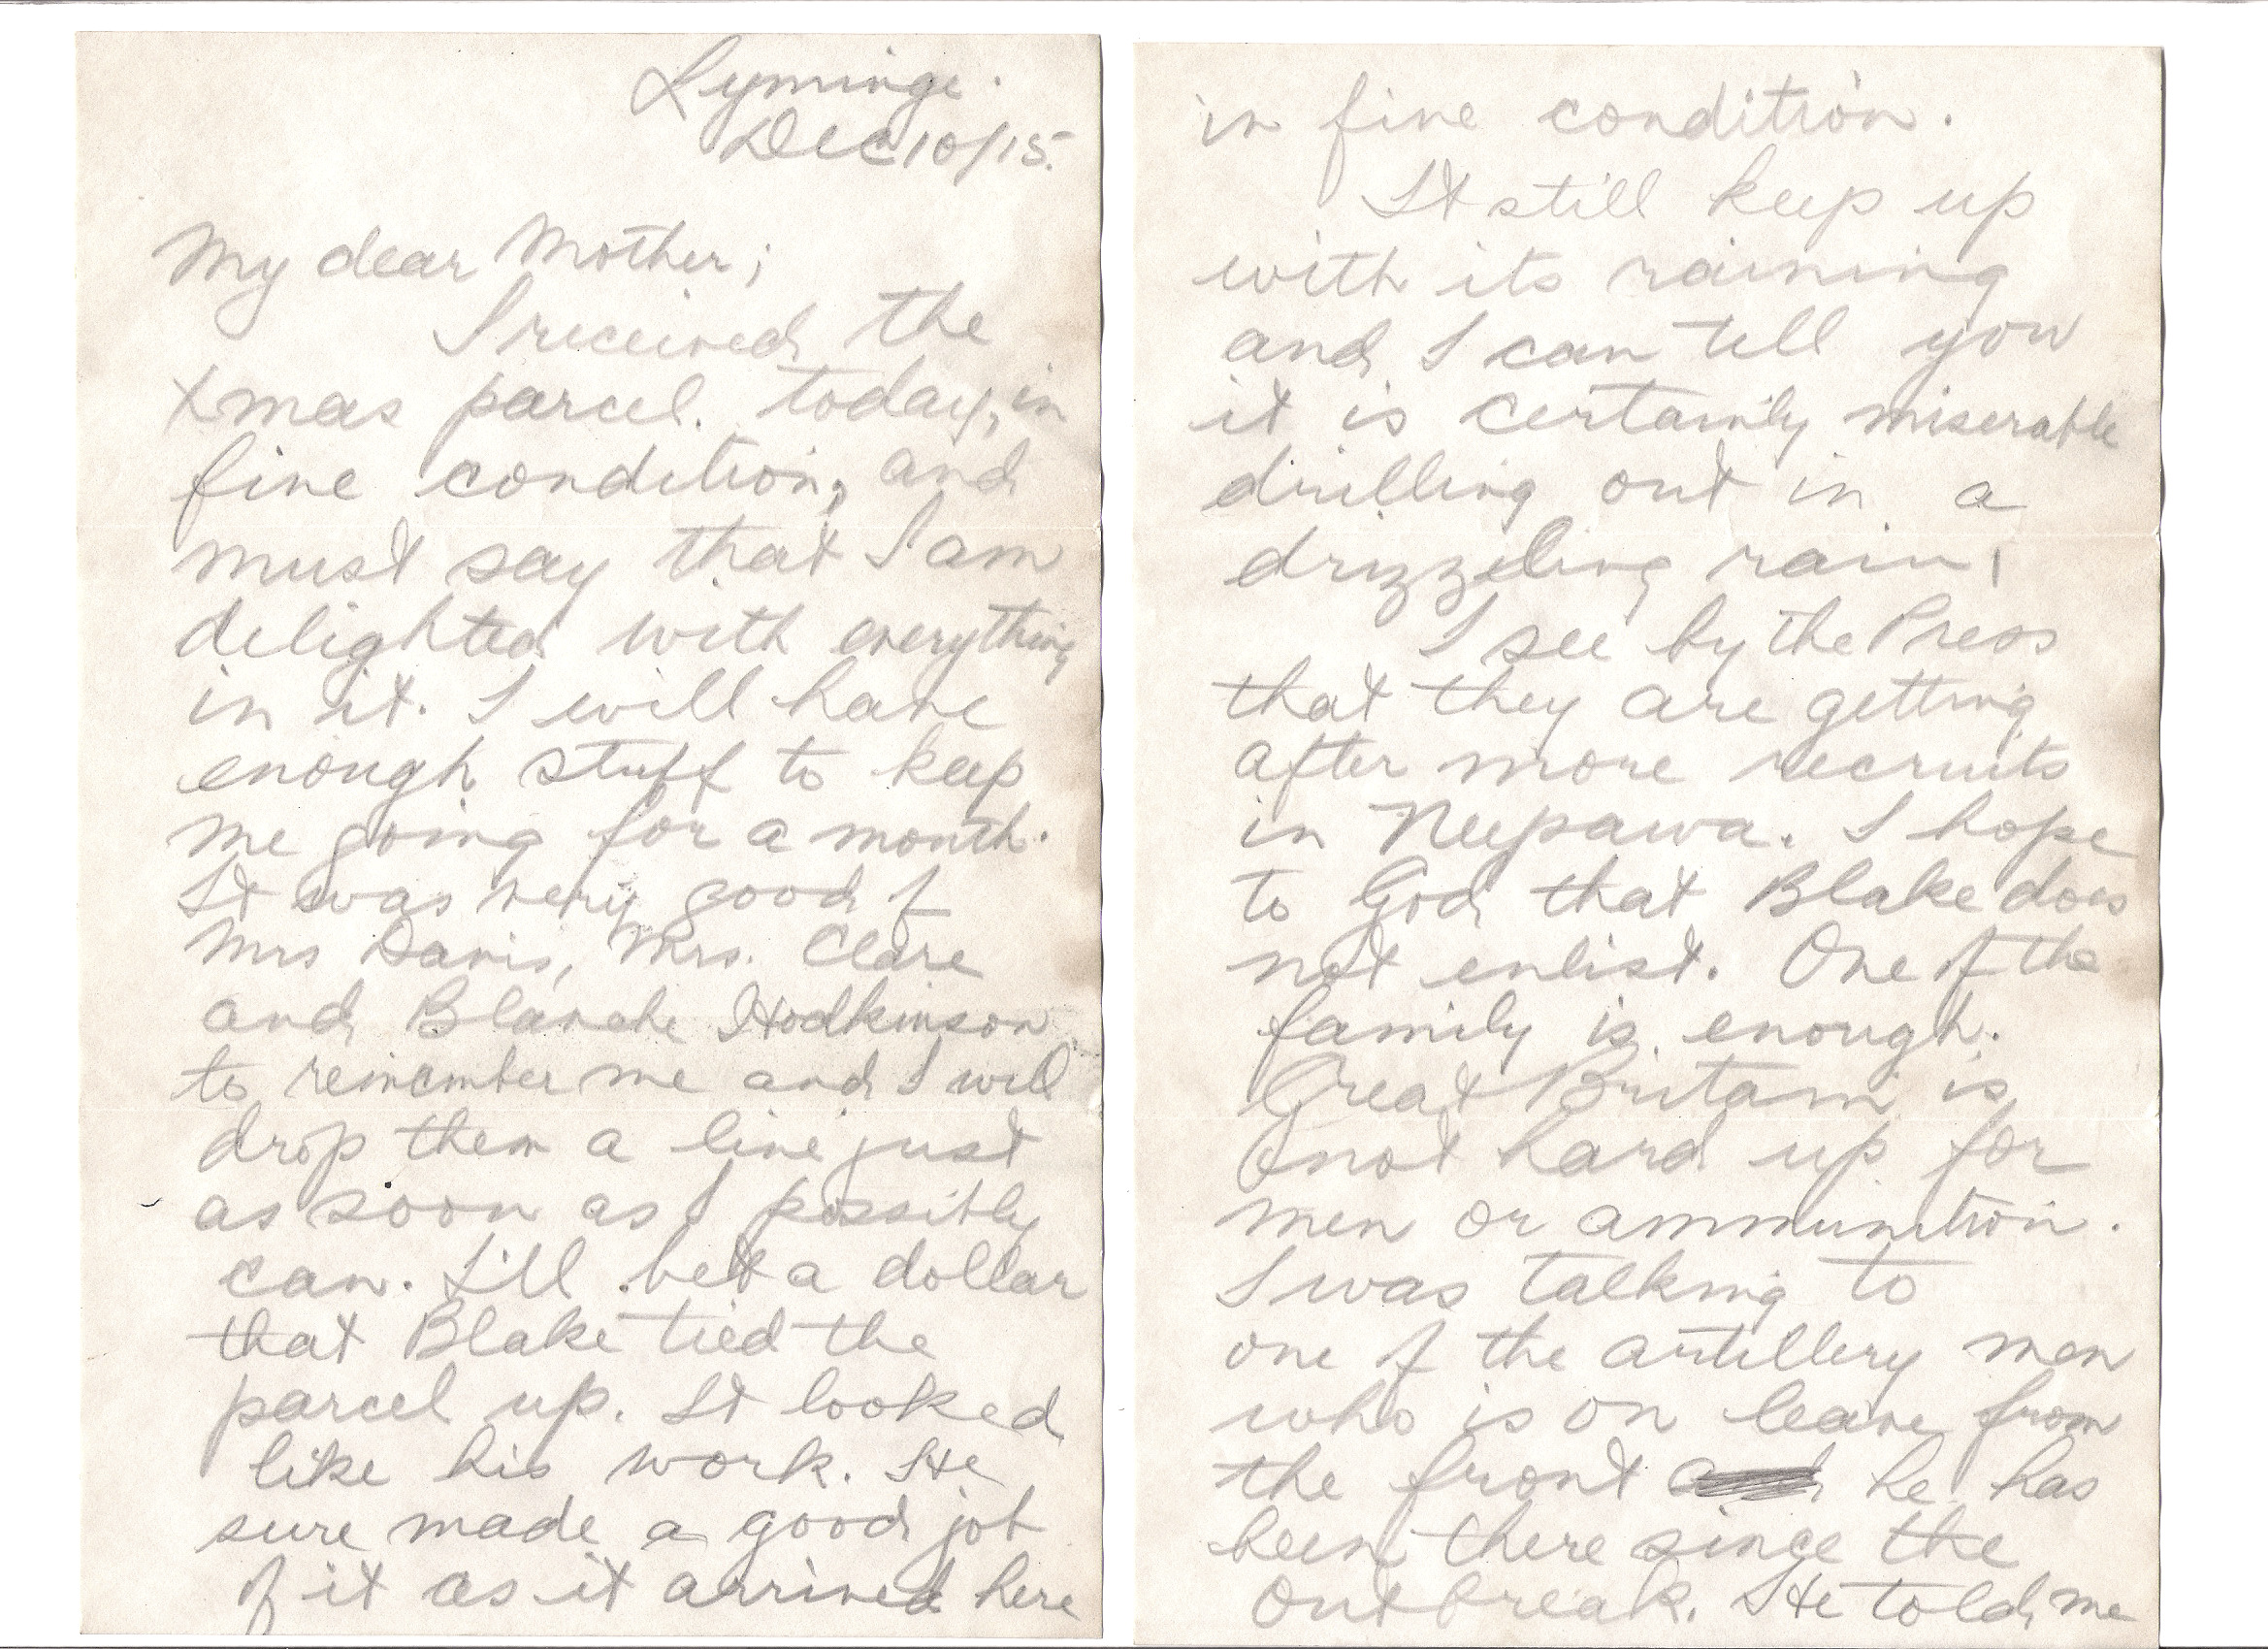 Lyminge.
Dec 10/15.
My dear Mother;
I received the
Xmas parcel. today, in
fine condition, and
must say that I am
delighted with everything
in it. I will have
enough stuff to keep
me going for a month.
It was very good of
Mrs Davis, Mrs. Clare
and Blanche Hodkinson
to remember me and I will
drop them a line just
as soon as I possibly
can. I'll bet a dollar
that Blake tied the
parcel up. It looked
like his work. He
sure made a good job
of it as it arrived here
in fine condition.
It still keep up
with its raining
and I can tell you
it is certainly miserable
drilling out in a
drizzeling rain,
I see by the Press
that they are getting
after more recruits
in Neepawa. I hope
to God that Blake does
not enlist. One of the
family is enough.
Great Britain is
not hard up for
men or ammunition.
I was talking to
one of the artillery men
who is on leave from
the front he has
been there since the
outbreak. He told me